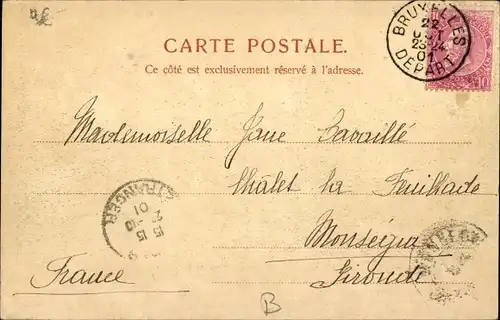 BRUXELLES
22
OCT
23-24
01
DÉPART
10
CARTE POSTALE.
Ce côté est exclusivement réservé à l'adresse.
Mademoiselle Jane Lavaillé
Châlet la Feuillade
Monségur
Gironde
France
ETRANGER
15 15
-10
01
B